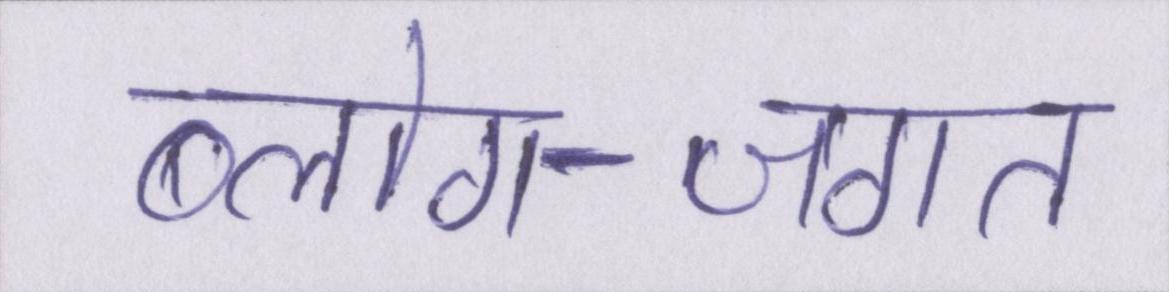 ब्लोग-जगत